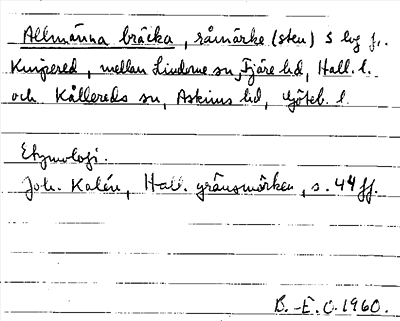 Allmänna bräcka, råmärke (sten) S
Kungered, mellan Lindome sn, Fjäre hd, Hall. l.
och Kållereds sn, Askims hd, Göteb. l.
Etymologi.
Joh. Kalén, Hall. gränsmärken, s. 44 ff.
B.-E. O. 1960.